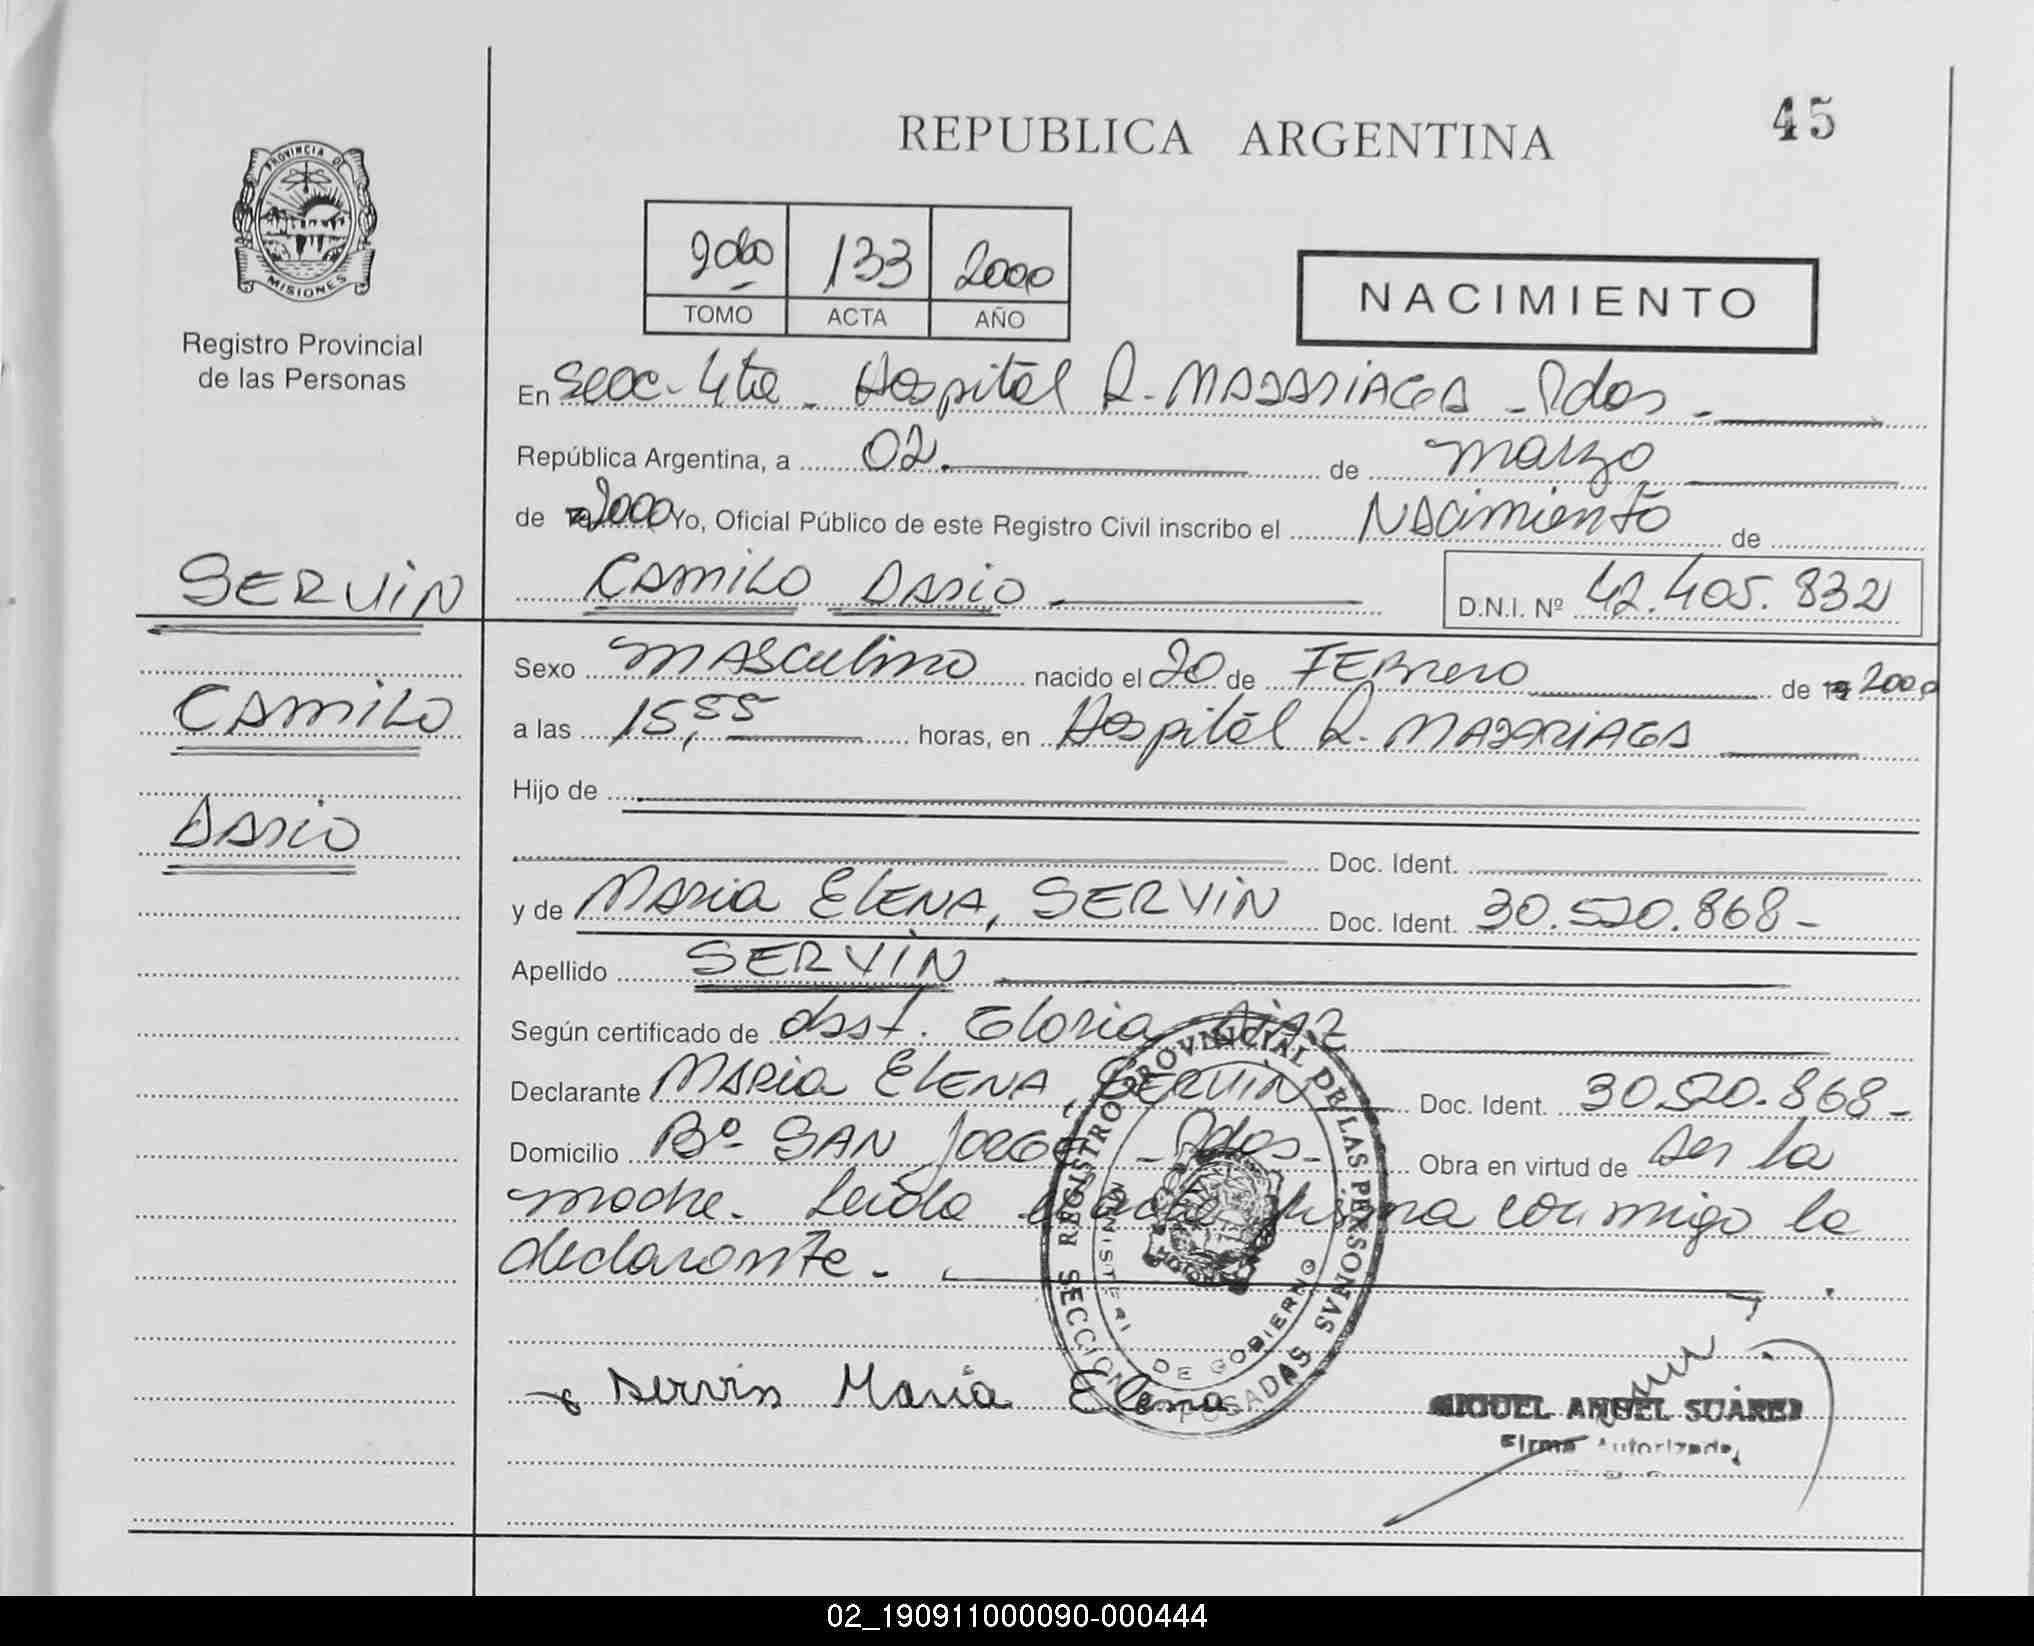 45
REPUBLICA ARGENTINA
PROVINCIA DE
MISIONES
Registro Provincial
de las Personas
2000 133 2000
TOMO ACTA AÑO
NACIMIENTO
En Secc. 4ta - Hospital R. MADARIAGA - Pdas -
República Argentina, a 02. de marzo
de 2000 Yo, Oficial Público de este Registro Civil inscribo el Nacimiento de
SERVIN
CAMILO DARIO D.N.I. Nº 42.405.832
Sexo MASCULINO nacido el 20 de FEBRERO de 19 2000
CAMILO
a las 15,55 horas, en Hospital R. MADARIAGA
Hijo de
DARIO
Doc. Ident.
y de MARIA ELENA, SERVIN Doc. Ident. 30.520.868-
Apellido SERVIN
Según certificado de obst. Gloria DIAZ
Declarante MARIA ELENA, SERVIN Doc. Ident. 30.520.868-
Domicilio Bº SAN JORGE - Pdas - Obra en virtud de ser la
madre. Leida el acta firma conmigo la
declarante.
REGISTRO PROVINCIAL DE LAS PERSONAS
SECCION POSADAS
MINISTERI DE GOBIERNO
Servin Maria Elena
MIGUEL ANGEL SUÁREZ
Firma Autorizada
02_190911000090-000444